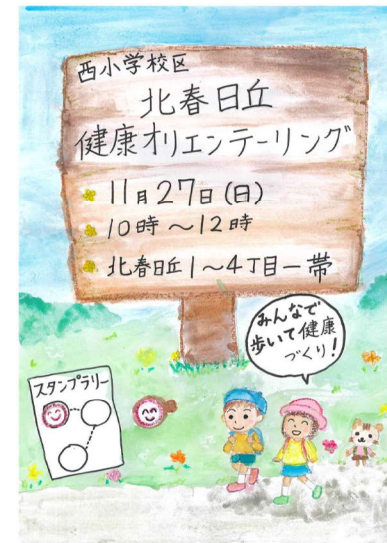 西小学校区
北春日丘
健康オリエンテーリング
11月27日(日)
10時〜12時
北春日丘1〜4丁目一帯
みんなで
歩いて健康
づくり!
スタンプラリー